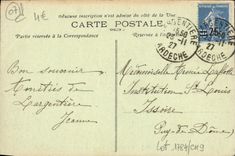 07
4€
Aucune inscription n'est admise du côté de la Vue
CARTE POSTALE
Partie réservée à la Correspondance
Réservée à l'
LARGENTIERE
ARDECHE
27
25c
Bon souvenir
Amitiés de
Largentière
Jeanne
Mademoiselle
Institution St Louis
Issoire
Puy-de-Dôme